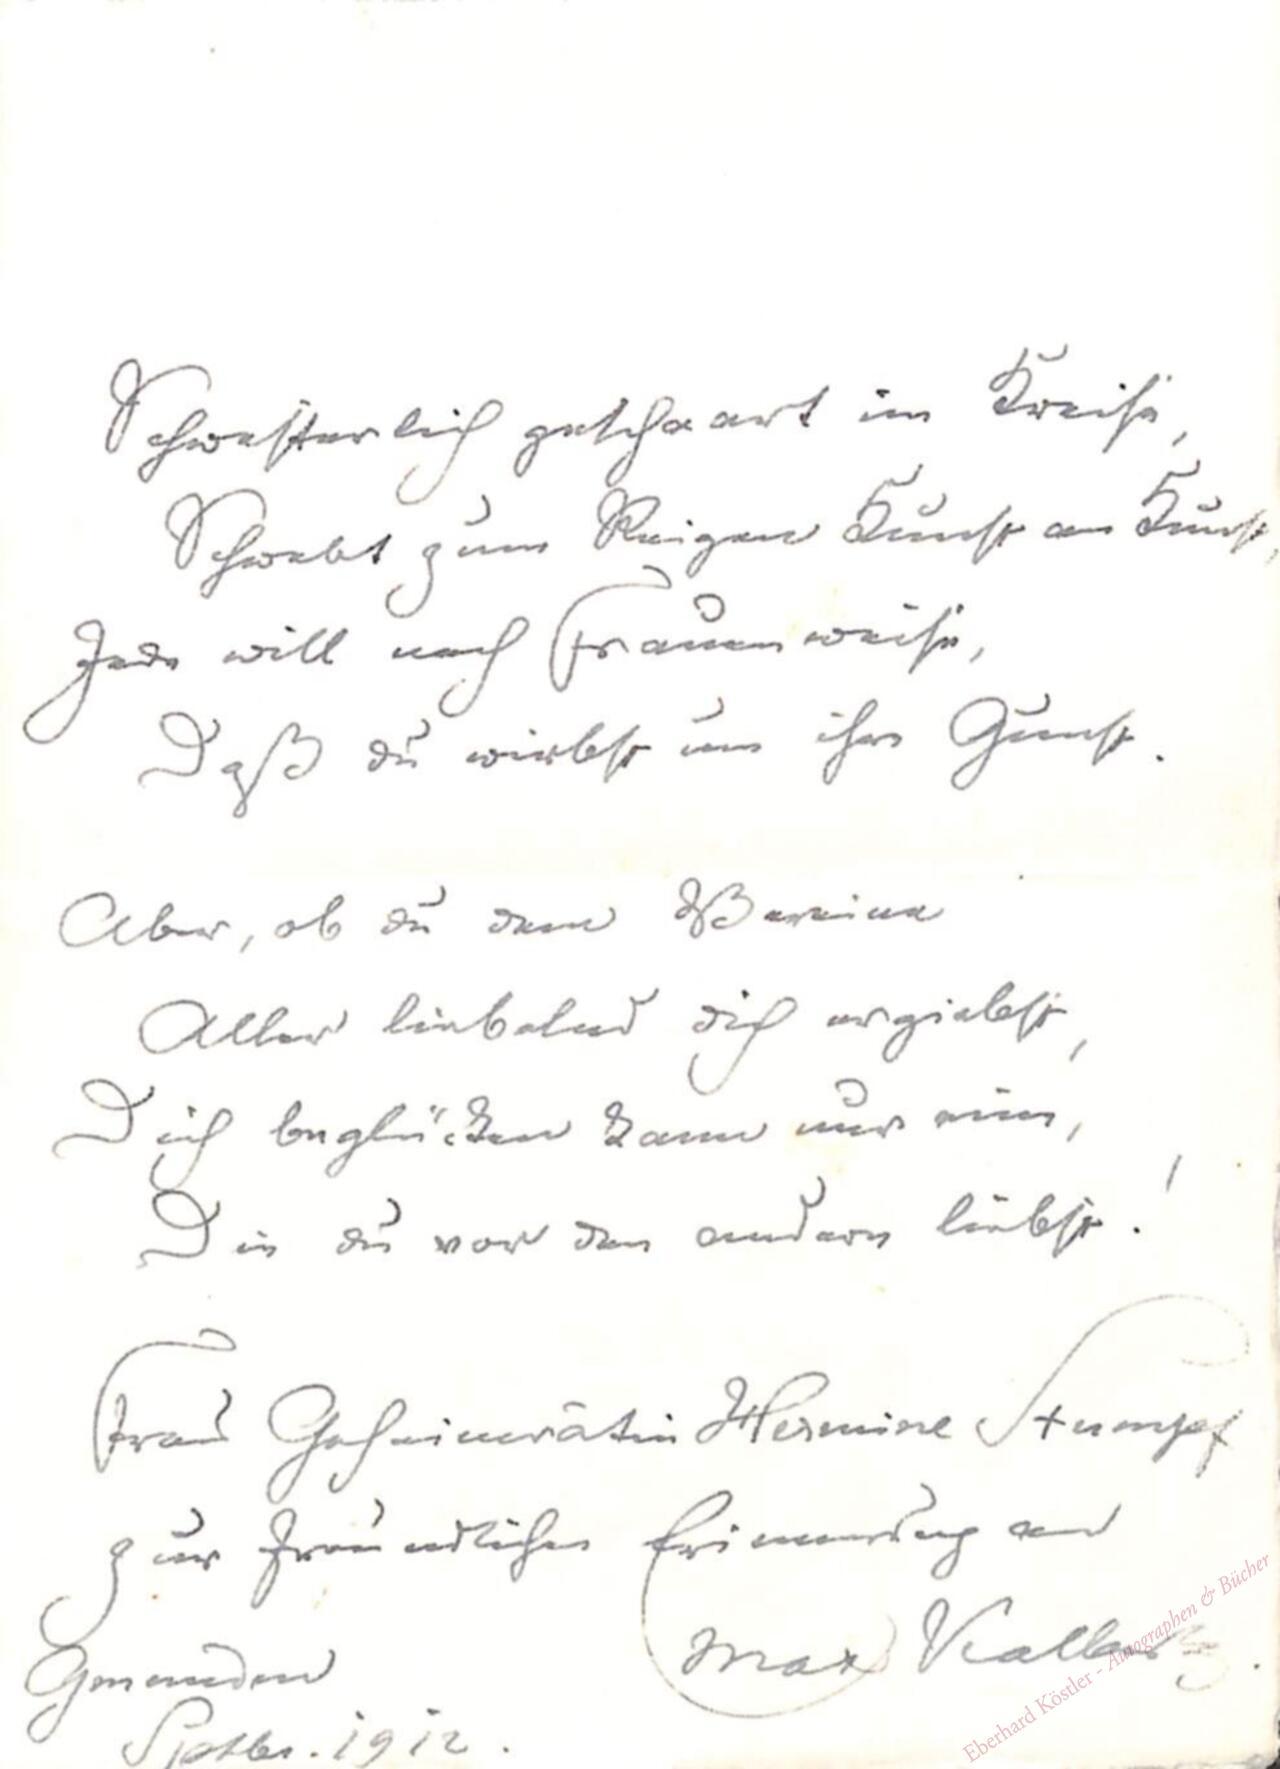 Schwesterlich geschaart im Kreise,
Schwebt zum Reigen Kunst an Kunst,
Jede will nach Frauenweise,
Daß du wirbst um ihre Gunst.
Aber, ob du dem Vereine
Aller liebelnd dich ergiebst,
Dich beglücken kann nur eine,
Die du vor den andern liebst!
Frau Geheimrätin Hermine Stumpf
zur freundlichen Erinnerung an
Max Kalbeck.
Gmunden
Septbr. 1912.
Eberhard Köstler - Autographen & Bücher